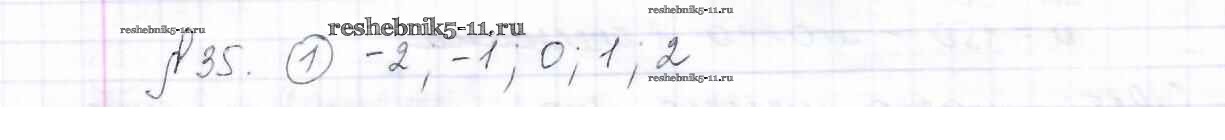 reshebnik5-11.ru
reshebnik5-11.ru
reshebnik5-11.ru
№ 35. 1 -2; -1; 0; 1; 2
reshebnik5-11.ru